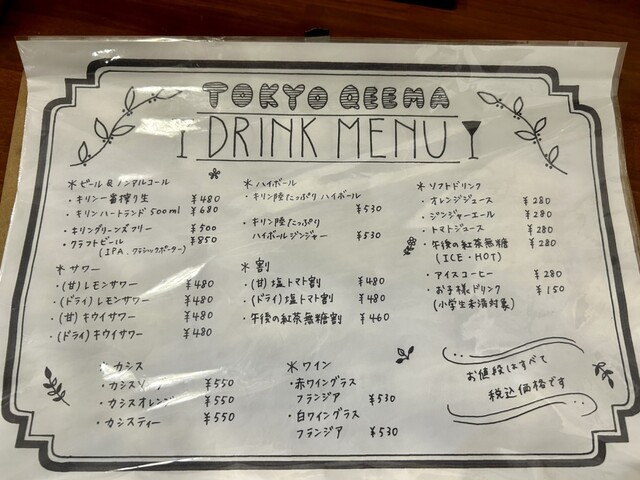 TOKYO QEEMA
DRINK MENU
＊ビール&ノンアルコール
・キリン一番搾り生 ¥480
・キリンハートランド 500ml ¥680
・キリングリーンズフリー ¥500
・クラフトビール ¥850
(IPA、クラシックポーター)
＊サワー
・(甘)レモンサワー ¥480
・(ドライ)レモンサワー ¥480
・(甘)キウイサワー ¥480
・(ドライ)キウイサワー ¥480
＊カシス
・カシスソーダ ¥550
・カシスオレンジ ¥550
・カシスティー ¥550
＊ハイボール
・キリン陸たっぷり ハイボール
¥530
・キリン陸たっぷり
ハイボールジンジャー ¥530
＊割
・(甘)塩トマト割 ¥480
・(ドライ)塩トマト割 ¥480
・午後の紅茶無糖割 ¥460
＊ワイン
・赤ワイングラス
フランジア ¥530
・白ワイングラス
フランジア ¥530
＊ソフトドリンク
・オレンジジュース ¥280
・ジンジャーエール ¥280
・トマトジュース ¥280
・午後の紅茶無糖 ¥280
(ICE・HOT)
・アイスコーヒー ¥280
・お子様ドリンク ¥150
(小学生未満対象)
お値段はすべて
税込価格です